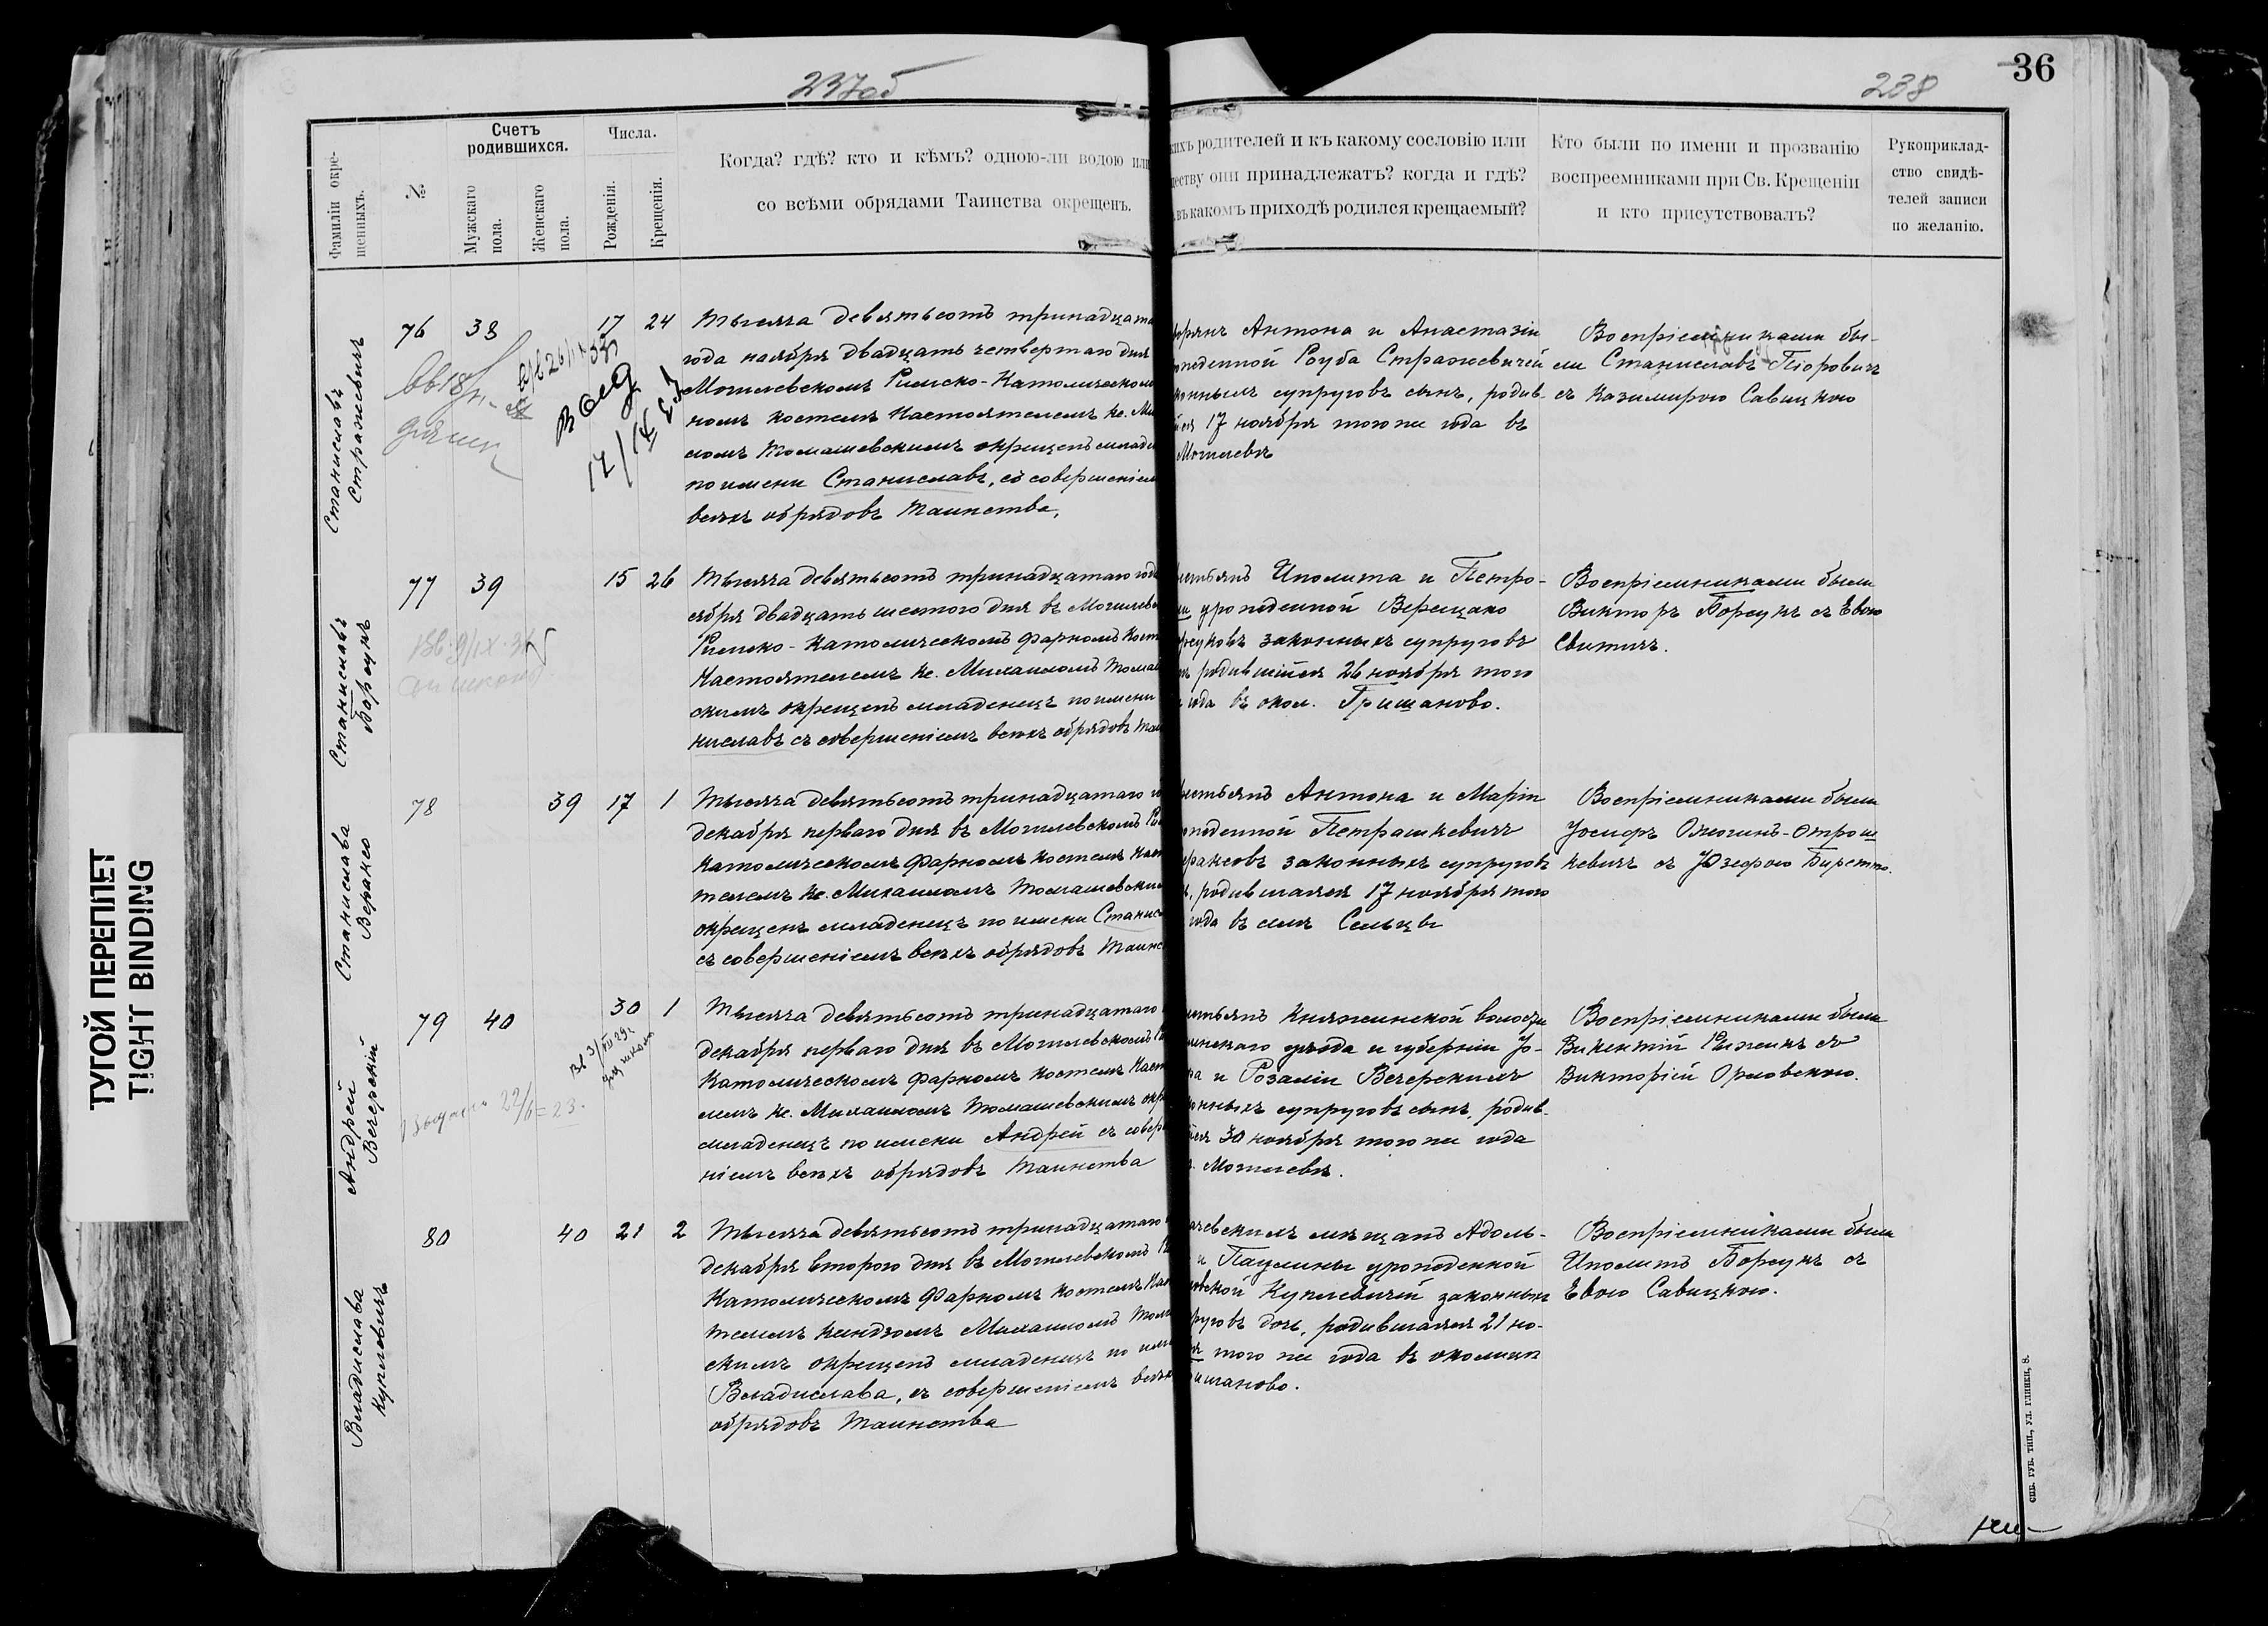 237об
36
238
Фамиліи окре-
щенныхъ.
№
Счетъ
родившихся.
Мужскаго
пола.
Женскаго
пола.
Числа.
Рожденія.
Крещенія.
Когда? гдѣ? кто и кѣмъ? одною-ли водою или
со всѣми обрядами Таинства окрещенъ.
кихъ родителей и къ какому сословію или
ществу они принадлежатъ? когда и гдѣ?
въ какомъ приходѣ родился крещаемый?
Кто были по имени и прозванію
воспреемниками при Св. Крещеніи
и кто присутствовалъ?
Рукоприклад-
ство свидѣ-
телей записи
по желанію.
Станиславъ
Стражевичъ
76 38 17 24
Тысяча девятьсотъ тринадцата
года ноября двадцать четвертаго дня
Могилевскомъ Римско-Католическом
номъ костелѣ Настоятелемъ кс. Ми
ломъ Томашевскимъ окрещенъ младе
по имени Станиславъ, съ совершеніем
всѣхъ обрядовъ Таинства.
орянъ Антона и Анастазіи
ожденной Роуба Стражевичей
конныхъ супруговъ сынъ, родив-
ійся 17 ноября того же года въ
Могилевѣ
Воспріемниками бы-
ли Станиславъ Піоровичъ
съ Казимирою Савицкою
Станиславъ
Борсукъ
77 39 15 26
Тысяча девятьсотъ тринадцатаго года
оября двадцать шестого дня въ Могилевс
Римско-Католическомъ Фарномъ Кост
Настоятелемъ Кс. Михаиломъ Томаш
скимъ окрещенъ младенецъ по имени
ниславъ съ совершеніемъ всѣхъ обрядовъ Таи
естьянъ Иполита и Петро-
ли урожденной Верещако
орсуковъ законныхъ супруговъ
родившійся 26 ноября того
года въ окол. Гришаново.
Воспріемниками были
Викторъ Борсукъ съ Евою
Свитичъ.
Станислава
Вераксо
78 39 17 1
Тысяча девятьсотъ тринадцатаго го
декабря перваго дня въ Могилевскомъ Ри
Католическомъ Фарномъ костелѣ Наст
телемъ Кс. Михаиломъ Томашевским
окрещенъ младенецъ по имени Станис
съ совершеніемъ всѣхъ обрядовъ Таинс
рестьянъ Антона и Маріи
ожденной Петрашкевичъ
ераксовъ законныхъ супруговъ
родившаяся 17 ноября того
года въ селѣ Сельцы
Воспріемниками были
Іосифъ Ожогинъ-Отрош
кевичъ съ Юзефою Бирето.
Андрей
Вечерскій
79 40 30 1
Тысяча девятьсотъ тринадцатаго
декабря перваго дня въ Могилевскомъ Р
Католическомъ Фарномъ костелѣ Насто
лемъ Кс. Михаиломъ Томашевскимъ окр
младенецъ по имени Андрей съ совер
ніемъ всѣхъ обрядовъ Таинства
естьянъ Княжинской волости
инскаго уѣзда и губерніи Іо-
а и Розаліи Вечерскихъ
онныхъ супруговъ сынъ, родив-
ійся 30 ноября того же года
Могилевѣ.
Воспріемниками были
Викентій Рыжикъ съ
Викторіей Орловскою.
Владислава
Куплевичъ
80 40 21 2
Тысяча девятьсотъ тринадцатаго
декабря второго дня въ Могилевскомъ Ри
Католическомъ Фарномъ костелѣ Нас
телемъ ксендзомъ Михаиломъ Тома
скимъ окрещенъ младенецъ по име
Владислава, съ совершеніемъ всѣхъ
обрядовъ Таинства
ачевскихъ мѣщанъ Адоль-
и Паулины урожденной
овской Куплевичей законных
пруговъ дочь, родившаяся 21 но-
ября того же года въ околицѣ
ишаново.
Воспріемниками были
Иполитъ Борсукъ съ
Евою Савицкою.
ТУГОЙ ПЕРЕПЛЕТ
TIGHT BINDING
СПБ. ГУБ. ТИП., УЛ. ГЛИНКИ, 8.